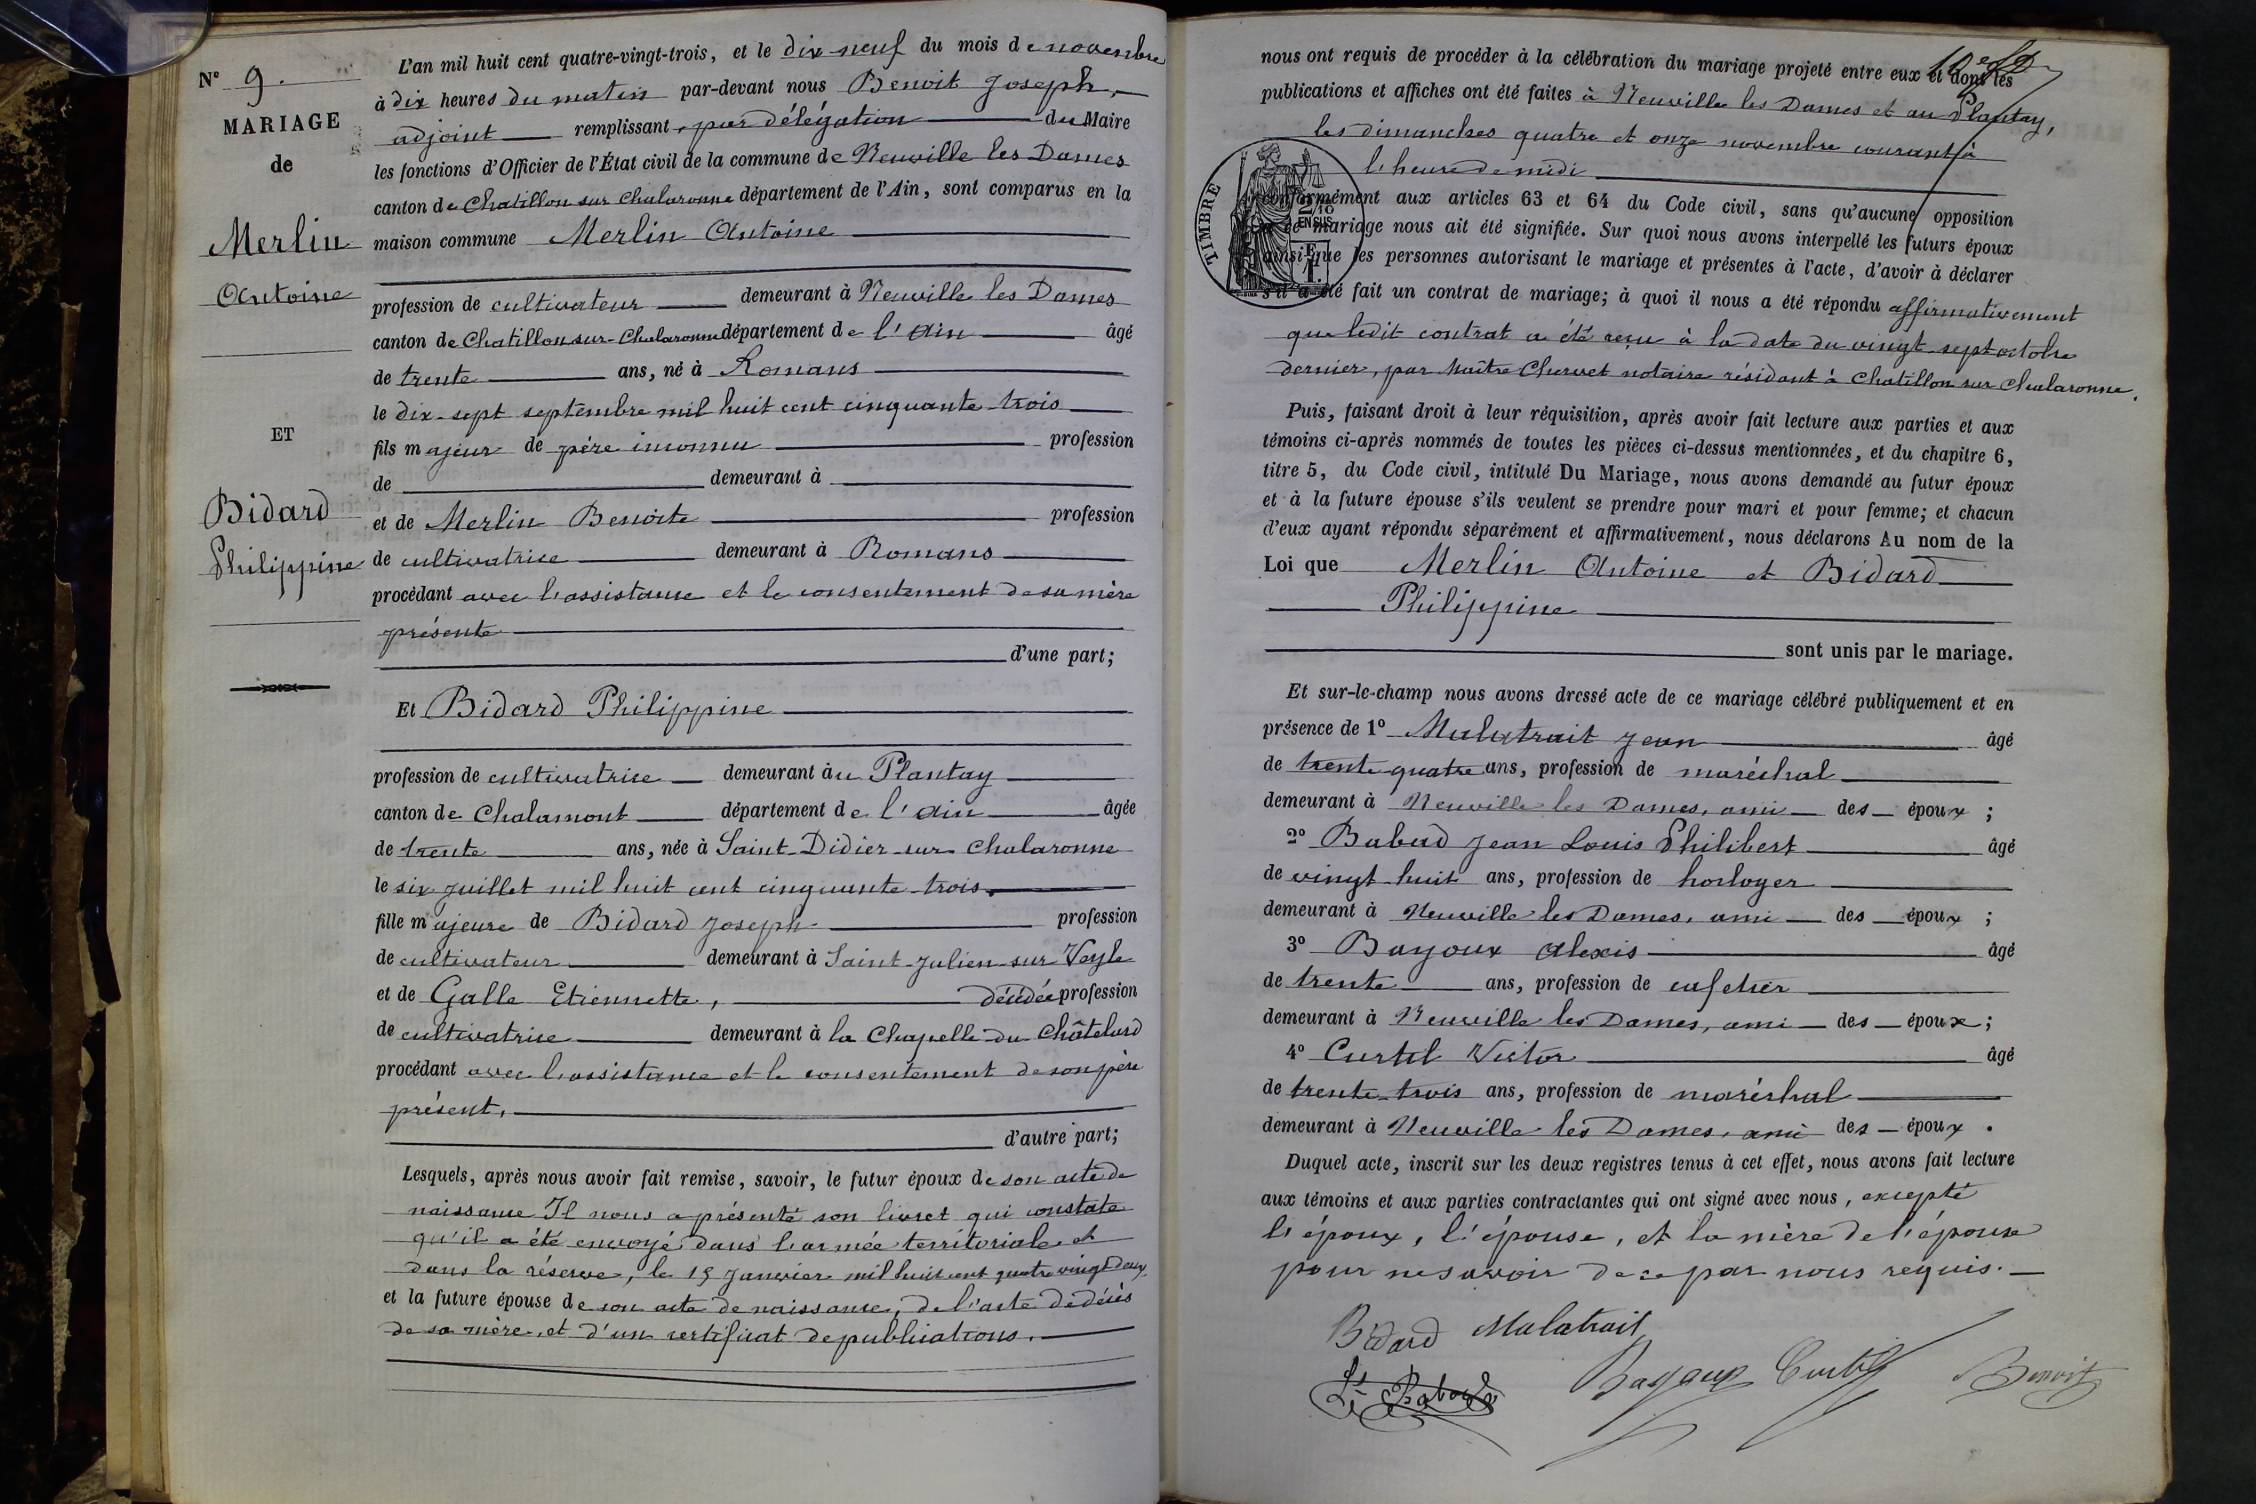 N° 9.
MARIAGE
de
Merlin
Antoine
ET
Bidard
Philippine
L'an mil huit cent quatre-vingt-trois, et le dix neuf du mois de novembre
à dix heures du matin par-devant nous Benoit Joseph,
adjoint remplissant, par délégation du Maire
les fonctions d'Officier de l'État civil de la commune de Neuville les Dames
canton de Chatillon sur Chalaronne département de l'Ain, sont comparus en la
maison commune Merlin Antoine
profession de cultivateur demeurant à Neuville les Dames
canton de Chatillon sur-Chalaronne département de l'Ain âgé
de trente ans, né à Romans
le dix-sept septembre mil huit cent cinquante-trois
fils majeur de père inconnu profession
de demeurant à
et de Merlin Benoite profession
de cultivatrice demeurant à Romans
procédant avec l'assistance et le consentement de sa mère
présente
d'une part;
Et Bidard Philippine
profession de cultivatrice demeurant au Plantay
canton de Chalamont département de l'Ain âgée
de trente ans, née à Saint-Didier-sur Chalaronne
le six juillet mil huit cent cinquante-trois,
fille majeure de Bidard Joseph profession
de cultivateur demeurant à Saint-Julien-sur Veyle
et de Galle Etiennette, décédée profession
de cultivatrice demeurant à la Chapelle-du Châtelard
procédant avec l'assistance et le consentement de son père
présent,
d'autre part;
Lesquels, après nous avoir fait remise, savoir, le futur époux de son acte de
naissance Il nous a présenté son livret qui constate
qu'il a été envoyé dans l'armée territoriale et
dans la réserve, le 15 Janvier mil huit cent quatre vingt deux,
et la future épouse de son acte de naissance, de l'acte de décès
de sa mère, et d'un certificat de publications.
nous ont requis de procéder à la célébration du mariage projeté entre eux et dont les
publications et affiches ont été faites à Neuville les Dames et au Plantay,
les dimanches quatre et onze novembre courant à
l'heure de midi
conformément aux articles 63 et 64 du Code civil, sans qu'aucune opposition
à ce mariage nous ait été signifiée. Sur quoi nous avons interpellé les futurs époux
ainsi que les personnes autorisant le mariage et présentes à l'acte, d'avoir à déclarer
s'il a été fait un contrat de mariage; à quoi il nous a été répondu affirmativement
que ledit contrat a été reçu à la date du vingt-sept octobre
dernier, par Maître Chervet notaire résidant à Chatillon sur Chalaronne.
TIMBRE
2/10
EN SUS
Puis, faisant droit à leur réquisition, après avoir fait lecture aux parties et aux
témoins ci-après nommés de toutes les pièces ci-dessus mentionnées, et du chapitre 6,
titre 5, du Code civil, intitulé Du Mariage, nous avons demandé au futur époux
et à la future épouse s'ils veulent se prendre pour mari et pour femme; et chacun
d'eux ayant répondu séparément et affirmativement, nous déclarons Au nom de la
Loi que Merlin Antoine et Bidard
Philippine
sont unis par le mariage.
Et sur-le-champ nous avons dressé acte de ce mariage célébré publiquement et en
présence de 1° Malatrait Jean âgé
de trente quatre ans, profession de maréchal
demeurant à Neuville les Dames, ami des époux ;
2° Babad Jean Louis Philibert âgé
de vingt-huit ans, profession de horloger
demeurant à Neuville les Dames, ami des époux ;
3° Bayoux Alexis âgé
de trente ans, profession de cafetier
demeurant à Neuville les Dames, ami des époux ;
4° Curtil Victor âgé
de trente-trois ans, profession de maréchal
demeurant à Neuville les Dames, ami des époux .
Duquel acte, inscrit sur les deux registres tenus à cet effet, nous avons fait lecture
aux témoins et aux parties contractantes qui ont signé avec nous, excepté
l'époux, l'épouse, et la mère de l'époux
pour ne savoir de ce par nous requis.
Bidard Malatrait
Bayoux Curtil Benoit